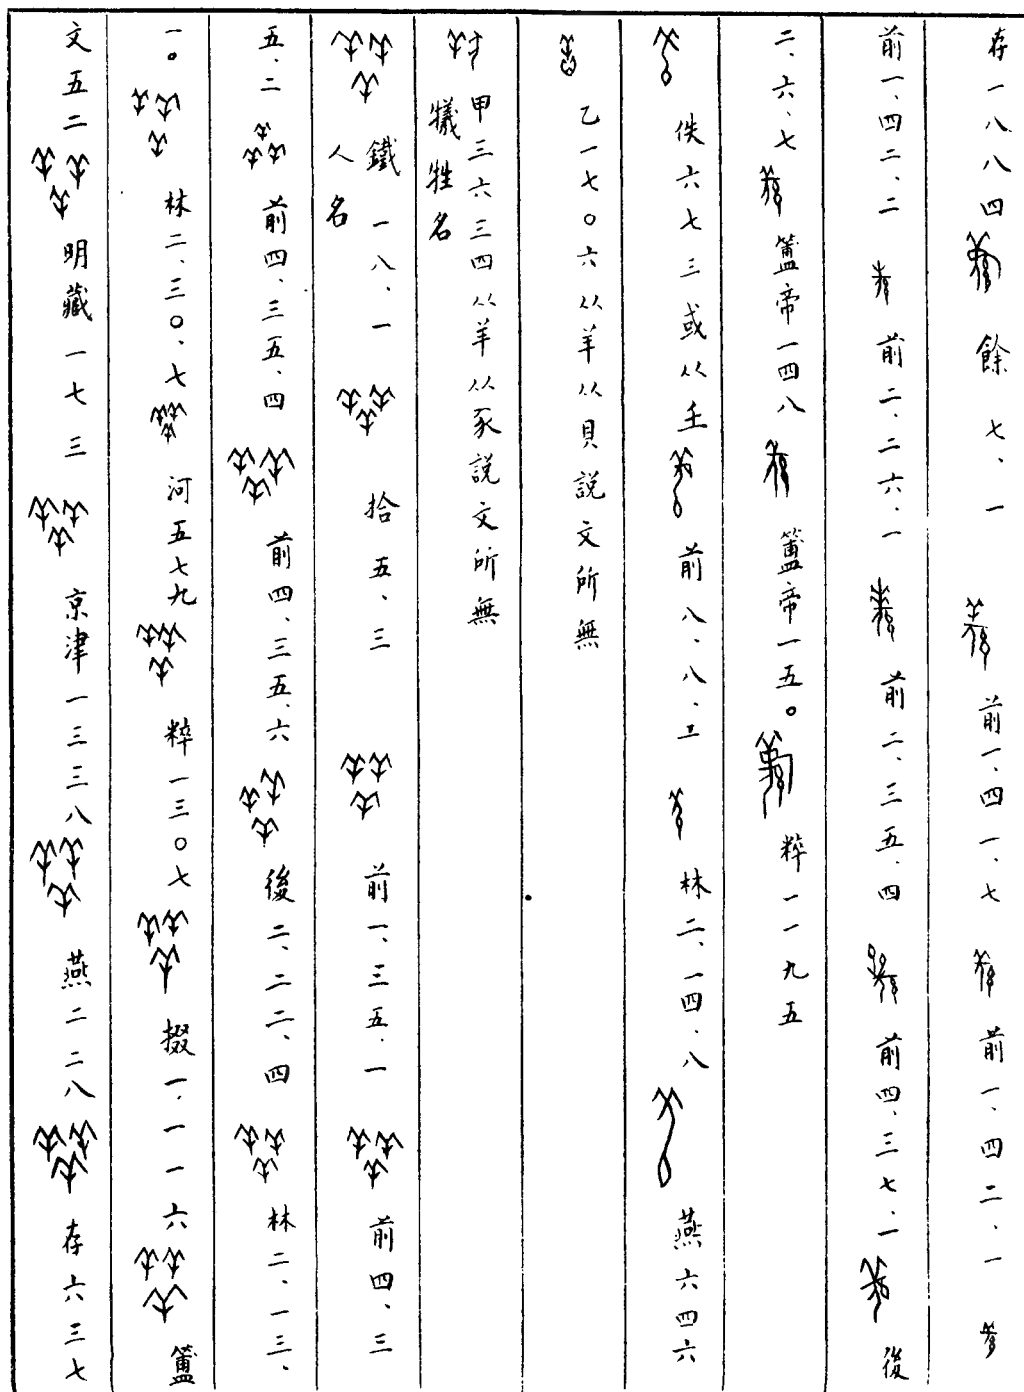 存一八八四 餘七、一 前一、四一、七 前一、四二、一
前一、四二、二 前二、二六、一 前二、三五、四 前四、三七、一 後
二、六、七 簠帝一四八 簠帝一五〇 粹一一九五
佚六七三或从壬 前八、八、二 林二、一四、八 燕六四六
乙一七〇六从羊从貝説文所無
甲三六三四从羊从豕説文所無
犧牲名
鐵一八、一 拾五、三 前一、三五、一 前四、三
人名
五、二 前四、三五、四 前四、三五、六 後二、二二、四 林二、一三、
一〇 林二、三〇、七 河五七九 粹一三〇七 掇一、一一六 簠
文五二 明藏一七三 京津一三三八 燕二二八 存六三七